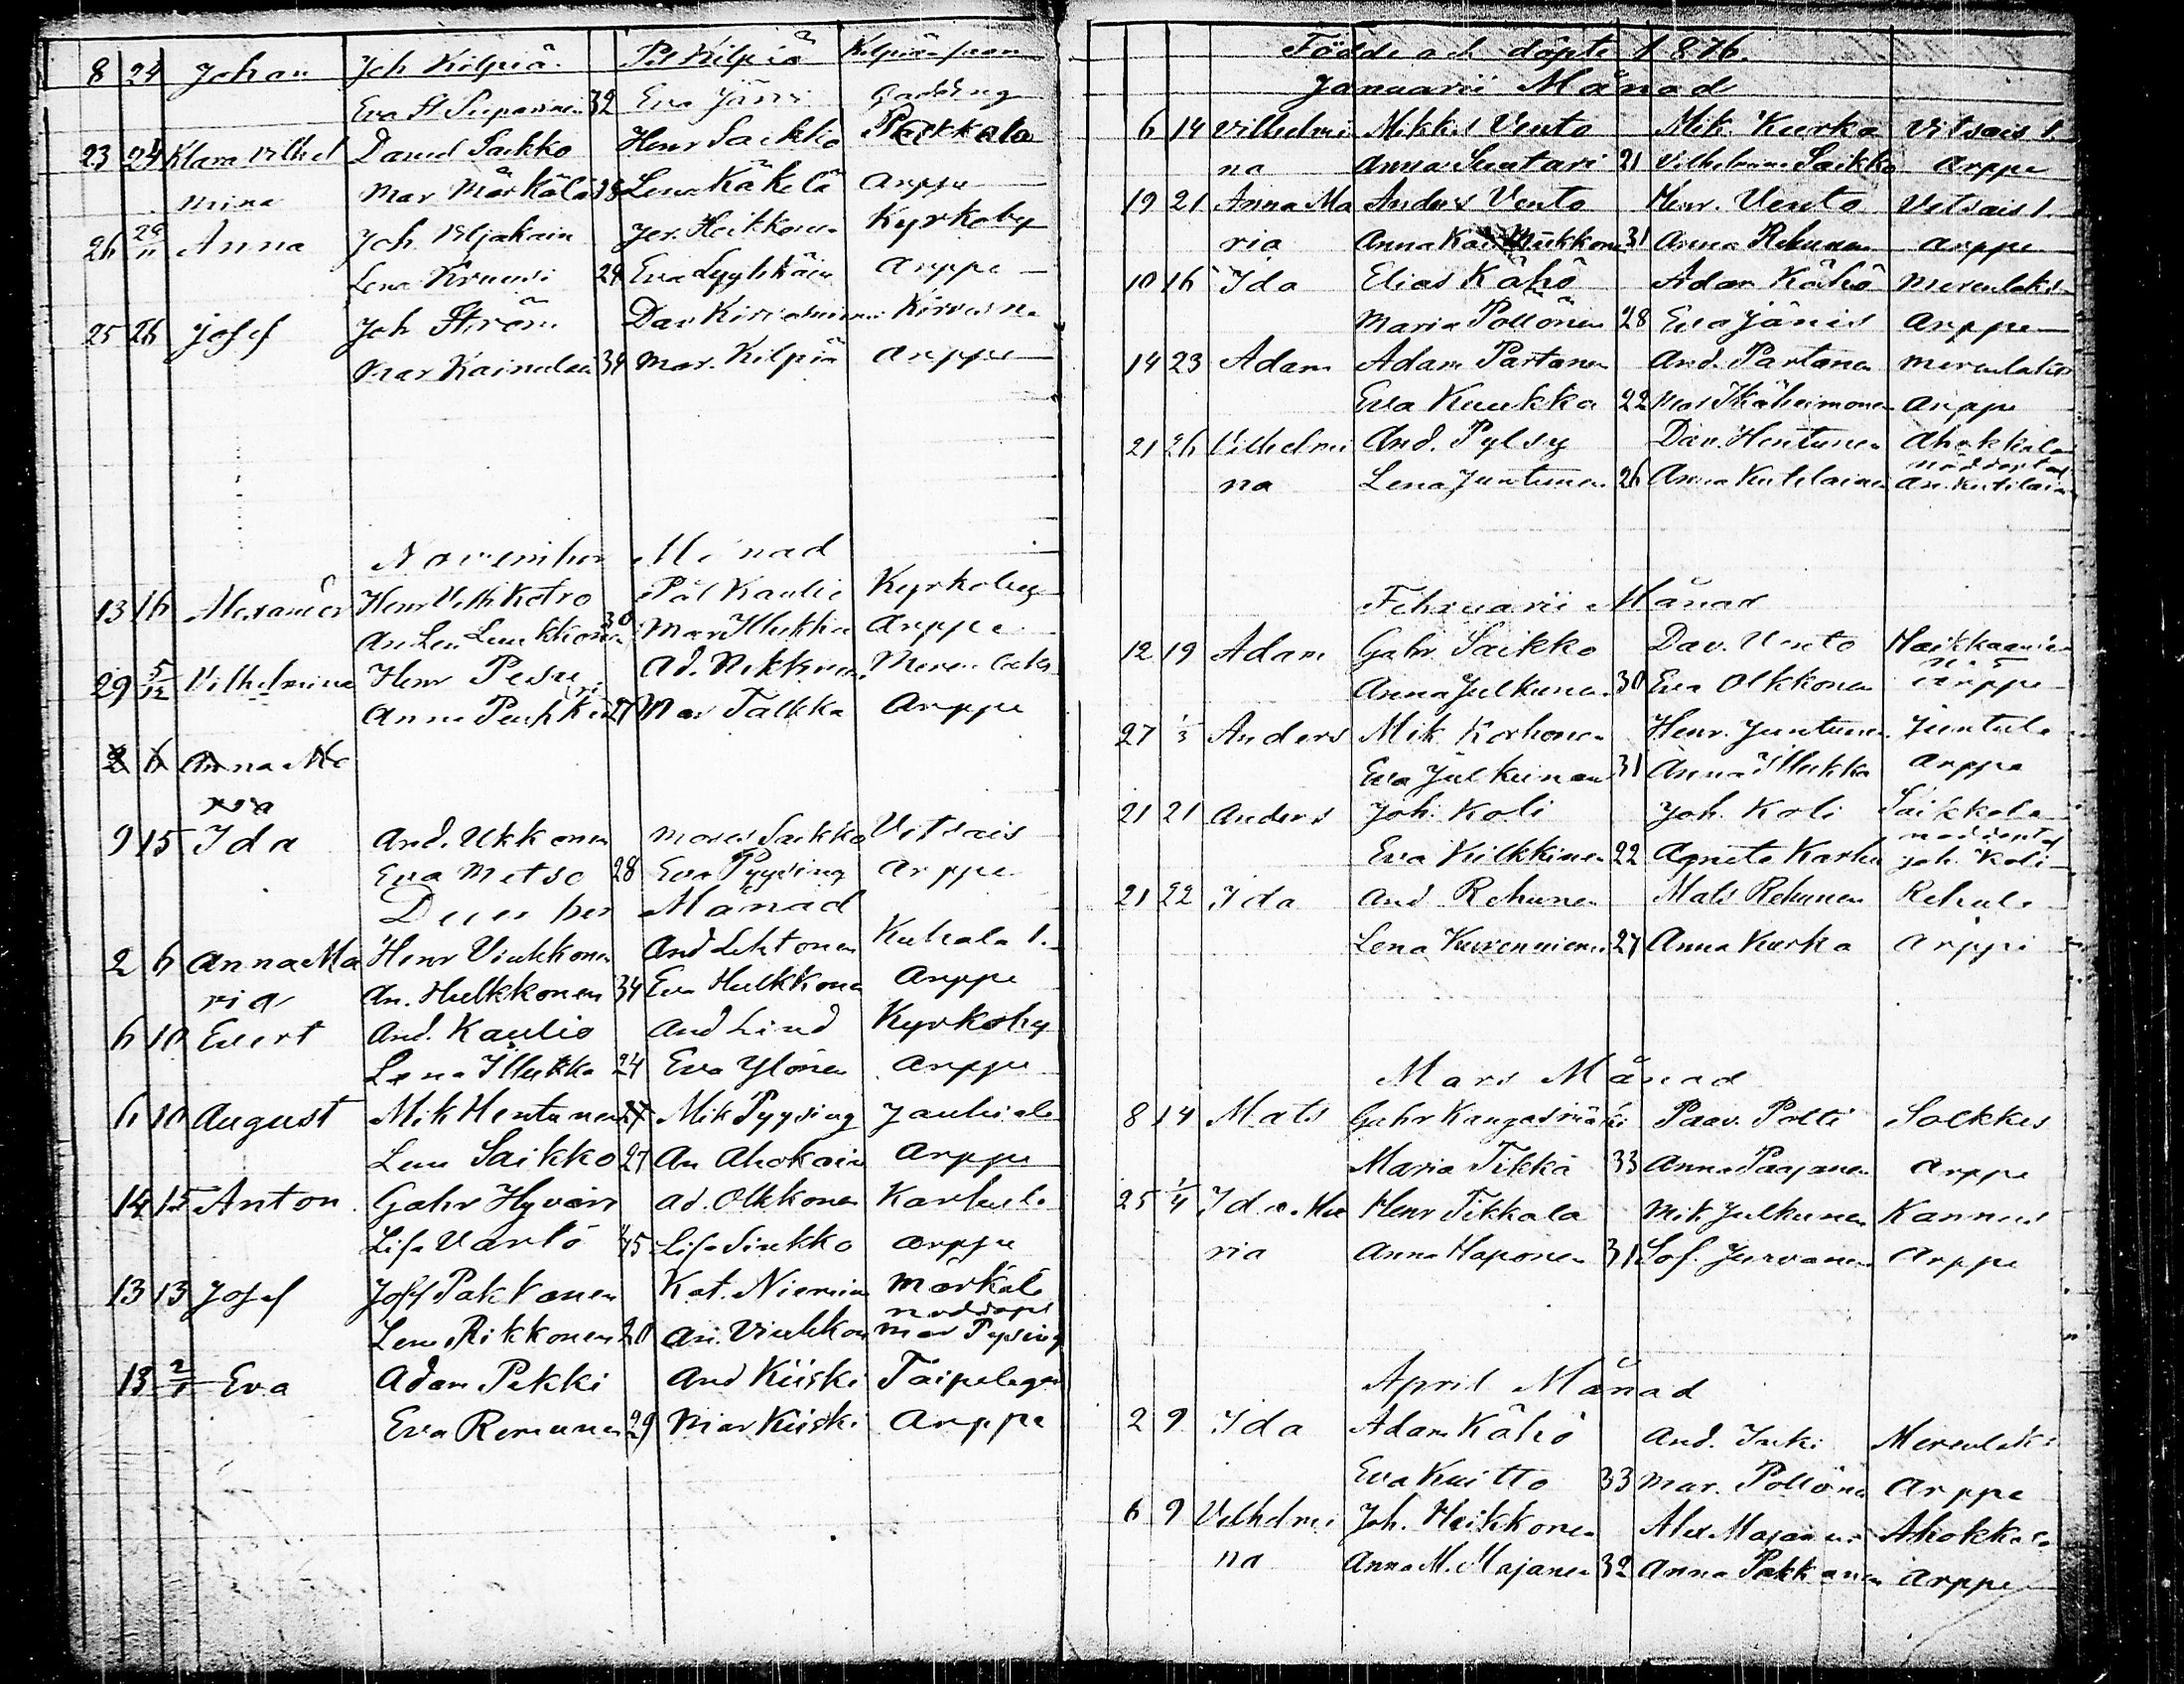 8 24 Johan Joh Kilpiä Pål Kilpiä
Eva 32 Eva
23 24 Klara Vilhel David Saikko Henr Saikko Pakkola
mina Mar Märkälä Lena Käkelä Arppe
26 29/11 Anna Joh. Jer. Heikkonen Kyrkoby
Lena 24 Eva Lyytikäin Arppe
25 26 Josef Joh Ström Dav
Mar Kainulai 34 Mar. Kilpiä Arppe
November Månad
13 16 Alexander Henr Vilh Ketro Pål Kaulio Kyrkoby
An Len Luukkonen 30 Mar Illukka Arppe
29 5/12 Vilhelmina Henr Pesu Ad.
Anna 27 Mar Talkka Arppe
2 6 Anna Ma
ria
9 15 Ida And. Ukkonen Moses Saikko Vitsais
Eva Metso 28 Eva Pyysing Arppe
December Månad
2 6 Anna Ma Henr Viukkonen And Lehtonen Kuhala 1.
ria An. Hulkkonen 34 Eva Hulkkonen Arppe
6 10 Evert And. Kaulio And Lind Kyrkoby
Lena Illukka 24 Eva Ylönen Arppe
6 10 August Mik Hentunen 27 Mik Pyysing Jauhiala
Lena Saikko 27 An Ahokain Arppe
14 15 Anton Gabr Hyvär Ad. Olkkonen Karhula
Lisa Varlö 45 Lisa Siukko Arppe
13 13 Josef Josf Pakkanen Kat. Niemin Märkälä
nöddöpt
Lena Rikkonen 20 An. Viukkon Mar Pysing
13 2/1 Eva Adam Pekki And Kiiski Taipale
Eva Remunen 29 Mar Kiiski Arppe
Födde och döpte 1876.
Januarii Månad
6 14 Vilhelmi Mikkel Vento Mik. Kurka Vitsais 1.
na Anna Suutari 21 Vilhelmina Saikko Arppe
19 21 Anna Ma Anders Vento Henr. Vento Vitsais 1.
ria Anna Kai 31 Anna Rehunen Arppe
10 16 Ida Elias Kähö Adam Kähö Merenlaks
Maria Pöllönen 28 Eva Jänis Arppe
14 23 Adam Adam Partanen And. Partanen Merenlaks
Eva Kuukka 22 Mar Ikäheimonen Arppe
21 26 Vilhelmi And. Pylsy Dav. Hentunen Ahokkala
nöddopt af
na Lena Juntunen 26 Anna Kutilainen An. Kutilain
Februarii Månad
12 19 Adam Gabr. Saikko Dav. Vento
Anna Julkunen 30 Eva Olkkonen Arppe
27 1/3 Anders Mik Korhonen Henr. Juntunen Juntula
Eva Julkunen 31 Anna Illukka Arppe
21 21 Anders Joh. Koli Joh. Koli Saikkola
nöddopt af
Eva Kilkkinen 22 Agneta Karhu Joh. Koli
21 22 Ida And Rehunen Mats Rehunen Rehula
Lena 27 Anna Kurka Arppe
Mars Månad
8 14 Mats Gabr Kangasmäki Paav. Potti Solkkes
Maria Tikkä 33 Anna Paajanen Arppe
25 1/4 Ida Ma Henr Tikkala Mik Julkunen Kannus
ria Anna Haponen 31 Sof. Jurvanen Arppe
April Månad
2 9 Ida Adam Kähö And. Inki Merenlaks
Eva Kuitto 33 Mar. Pöllönen Arppe
6 9 Vilhelmi Joh. Heikkonen Alex Majanen Ahokkala
na Anna M. Majanen 32 Anna Pakkanen Arppe